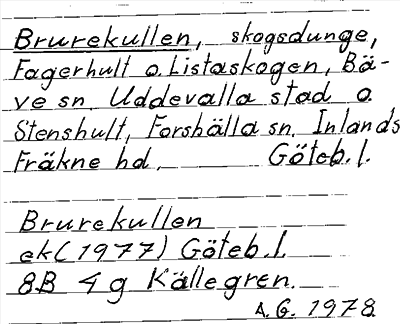 Brurekullen, skogsdunge,
Fagerhult o. Listaskogen, Bä-
ve sn. Uddevalla stad o.
Stenshult, Forshälla sn. Inlands
Fräkne hd. Göteb. l.
Brurekullen
ek (1977) Göteb. l.
8B 4g Källegren.
A.G. 1978